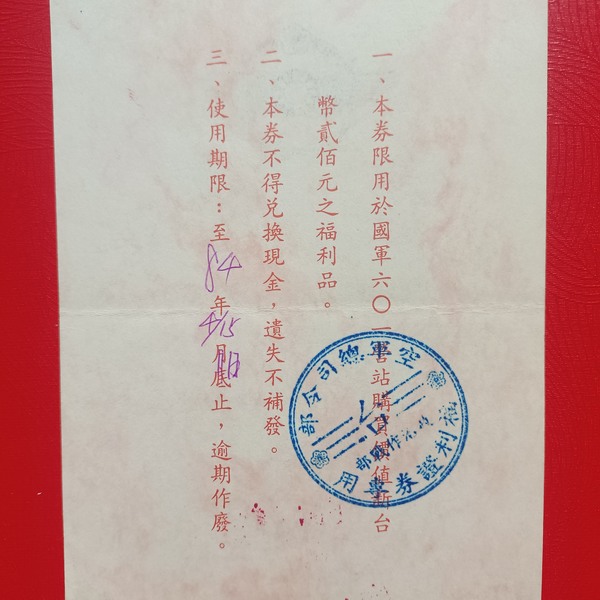 一、本券限用於國軍六〇一營站購買價值新台
幣貳佰元之福利品。
二、本券不得兌換現金，遺失不補發。
三、使用期限：至84年4/15月底止，逾期作廢。
空軍總司令部
福利證券專用